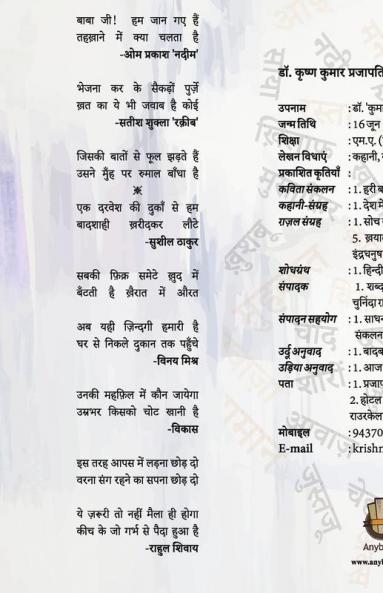 बाबा जी! हम जान गए हैं
तहख़ाने में क्या चलता है
-ओम प्रकाश 'नदीम'
भेजना कर के सैकड़ों पुर्ज़े
ख़त का ये भी जवाब है कोई
-सतीश शुक्ला 'रक़ीब'
जिसकी बातों से फूल झड़ते हैं
उसने मुँह पर रुमाल बाँधा है
※
एक दरवेश की दुकाँ से हम
बादशाही ख़रीदकर लौटे
-सुशील ठाकुर
सबकी फ़िक्र समेटे ख़ुद में
बँटती है ख़ैरात में औरत
अब यही ज़िन्दगी हमारी है
घर से निकले दुकान तक पहुँचे
-विनय मिश्र
उनकी महफ़िल में कौन जायेगा
उम्रभर किसको चोट खानी है
-विकास
इस तरह आपस में लड़ना छोड़ दो
वरना संग रहने का सपना छोड़ दो
ये ज़रूरी तो नहीं मैला ही होगा
कीच के जो गर्भ से पैदा हुआ है
-राहुल शिवाय
डॉ. कृष्ण कुमार प्रजापति
उपनाम : डॉ. 'कुम
जन्मतिथि : 16 जून
शिक्षा : एम.ए. (
लेखन विधाएं : कहानी,
प्रकाशित कृतियाँ :
कविता संकलन : 1. हरी ब
कहानी-संग्रह : 1. देश में
ग़ज़ल संग्रह : 1. सोच
5. ख़या
इंद्रधनुष
शोधग्रंथ : 1. हिन्दी
संपादक 1. शब्द
चुनिंदा रा
संपादन सहयोग : 1. साधन
संकलन
उर्दू अनुवाद : 1. बादब
उड़िया अनुवाद : 1. आज
पता : 1. प्रजाप
2. होटल
राउरकेला
मोबाइल : 94370
E-mail : krishn
Anyb
www.anyb